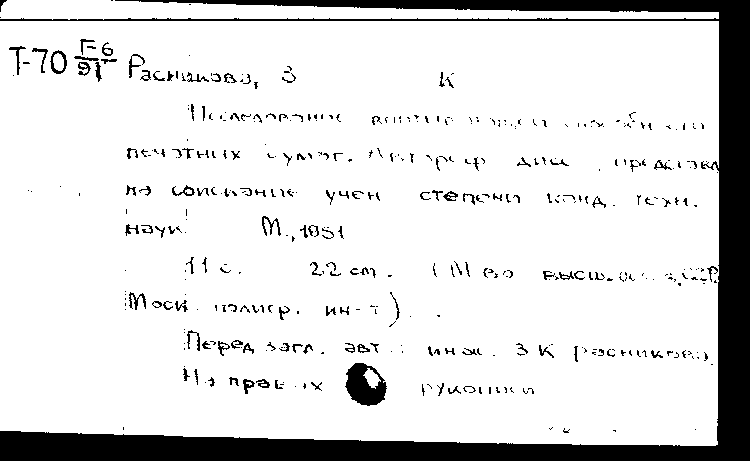 Т-70 Г-6/91 Расникова, З К
Исследование впитывающей способности
печатных бумаг. Автореф дис. представл
на соискание учен степени канд. техн.
наук М., 1951
11 с. 22 см. (М во высш.
Моск. полигр. ин-т).
Перед загл. авт: инж. З К Расникова.
На правах рукописи